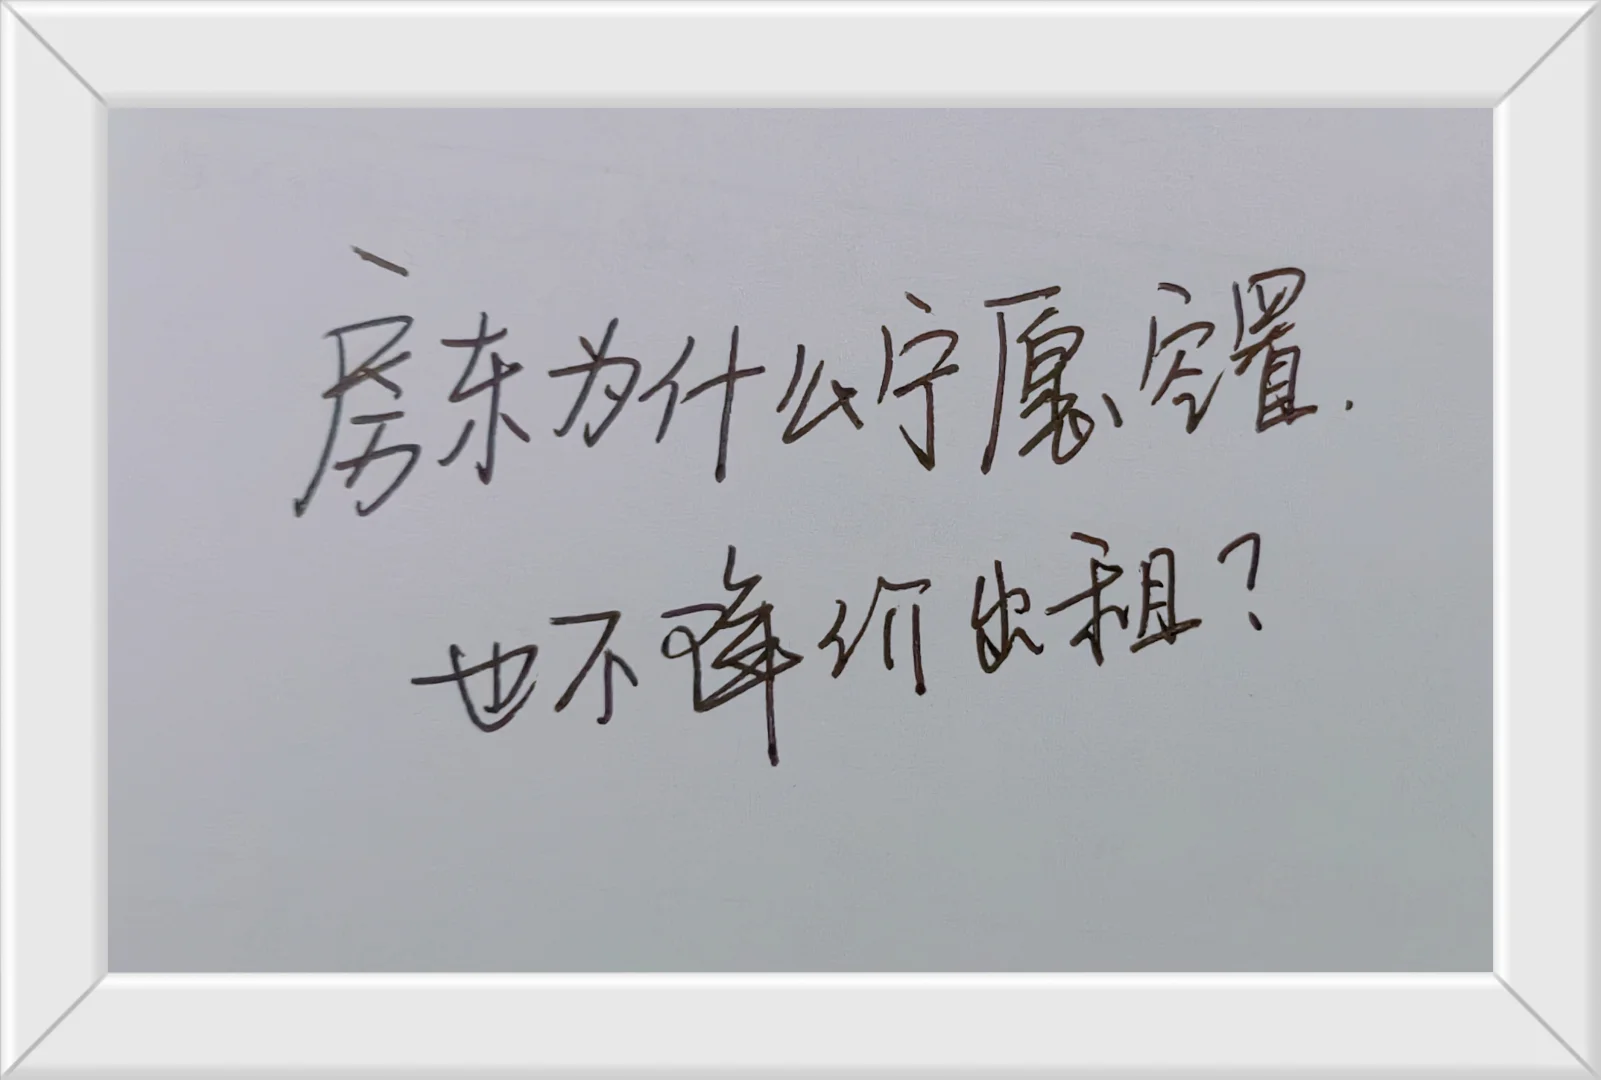 房东为什么宁愿空置.
也不降价出租?